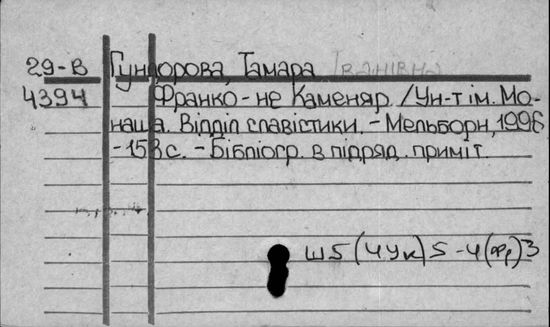 29-В Гундорова, Тамара Іванівна
4394 Франко - не Каменяр. /Ун-т ім. Мо-
наша. Відділ славістики. - Мельборн, 1996
- 153 с. - Бібліогр. в підряд. приміт.
Ш5(4Ук)5-4(Фр)3